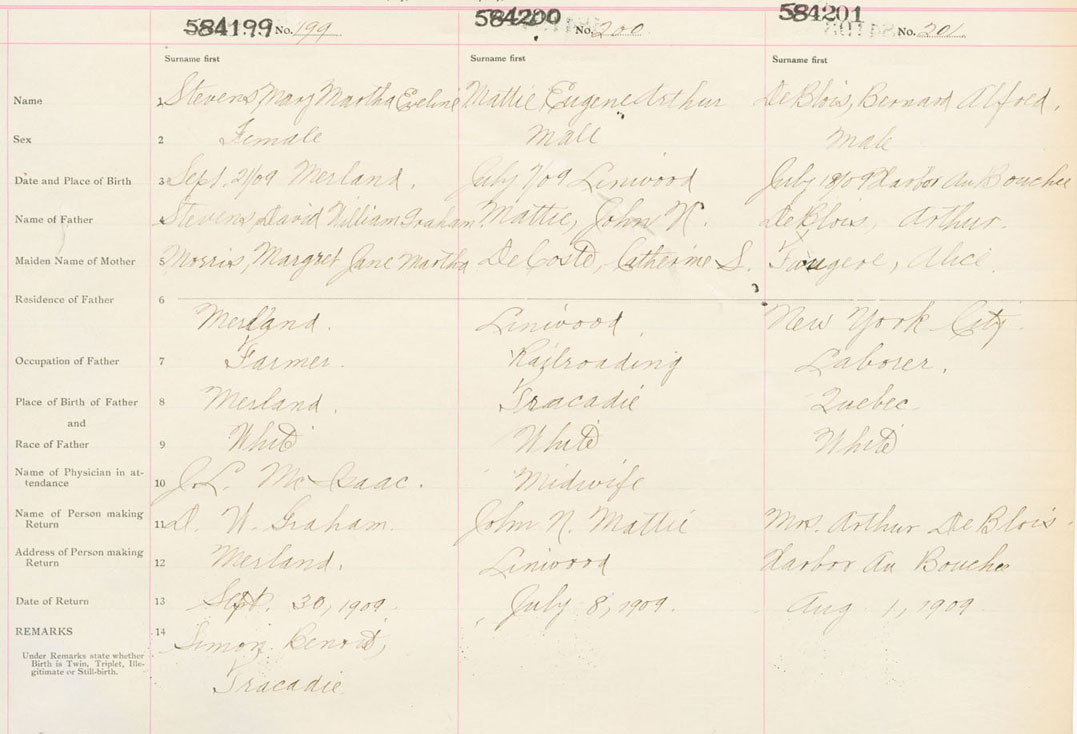 584199 No. 199 584200 No. 200 584201 No. 201
Surname first Surname first Surname first
Name 1 Stevens, Mary Martha Eveline Mattie, Eugene Arthur DeBlois, Bernard Alfred.
Sex 2 Female Male Male
Date and Place of Birth 3 Sept. 21/09 Merland. July 7/09 Linwood July 18/09 Harbor Au Bouche
Name of Father 4 Stevens, David William Graham Mattie, John N. DeBlois, Arthur.
Maiden Name of Mother 5 Morris, Margret Jane Martha DeCoste, Catherine S. Fougere, Alice.
Residence of Father 6
Merland. Linwood New York City.
Occupation of Father 7 Farmer. Railroading Laborer.
Place of Birth of Father 8 Merland. Tracadie Quebec.
and
Race of Father 9 White White White
Name of Physician in at-
tendance 10 J. L. McIsaac. Midwife
Name of Person making
Return 11 D. W. Graham. John N. Mattie Mrs. Arthur DeBlois.
Address of Person making
Return 12 Merland. Linwood Harbor Au Bouche
Date of Return 13 Sept. 30, 1909. July 8, 1909. Aug 1, 1909
REMARKS 14 Simon Benoit,
Under Remarks state whether
Birth is Twin, Triplet, Ille-
gitimate or Still-birth.
Tracadie